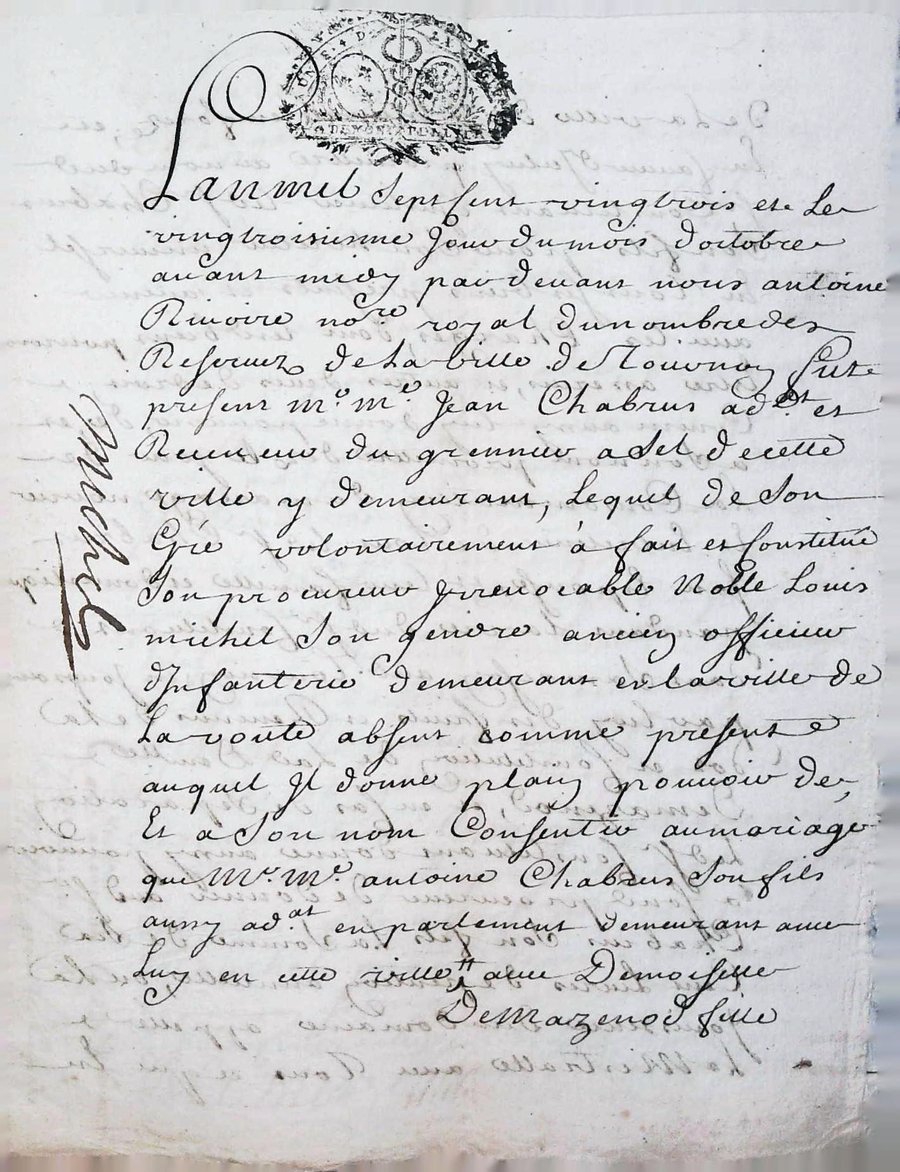 DE MONTPELLIER
Lanmil Sept Cent vingtrois et Le
vingtroisiesme Jour du mois d'octobre
avant midy par devant nous antoine
Riuoire no.re royal du nombre des
Reseruez de La ville de Tournon fut
present M.e M.e Jean Chabrus ad.at et
Receueur du grennier a Sel de cette
ville y demeurant, Lequel de Son
Gré volontairement à fait et Constitué
Son procureur Jrreuocable Noble Louis
michel Son gendre ancien officier
dJnfanterie demeurant en la ville de
La voute absent comme present &
auquel Jl donne plain pouuoir de,
Et a Son nom Consentir au mariage
que M.e M.e antoine Chabrus Son fils
aussy ad.at en parlement demeurant auec
Luy en cette ville auec Demoiselle
De Mazenod fille
Michel